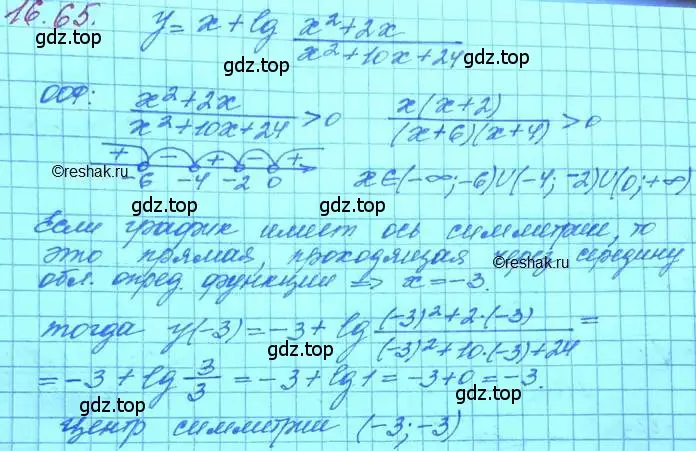 16.65. y = x + lg (x² + 2x)/(x² + 10x + 24)
gdz.top gdz.top gdz.top
ООФ: (x² + 2x)/(x² + 10x + 24) > 0 x(x+2)/((x+6)(x+4)) > 0
+ − + − +
©reshak.ru
-6 -4 -2 0 x∈(-∞;-6)∪(-4;-2)∪(0;+∞)
gdz.top gdz.top
Если график имеет ось симметрии, то
это прямая, проходящая через середину
©reshak.ru
обл. опред. функции => x = -3.
gdz.top gdz.top gdz.top
тогда y(-3) = -3 + lg ((-3)² + 2·(-3))/((-3)² + 10·(-3) + 24) =
©reshak.ru
= -3 + lg 3/3 = -3 + lg 1 = -3 + 0 = -3.
gdz.top gdz.top
Центр симметрии (-3; -3)
gdz.top gdz.top gdz.top